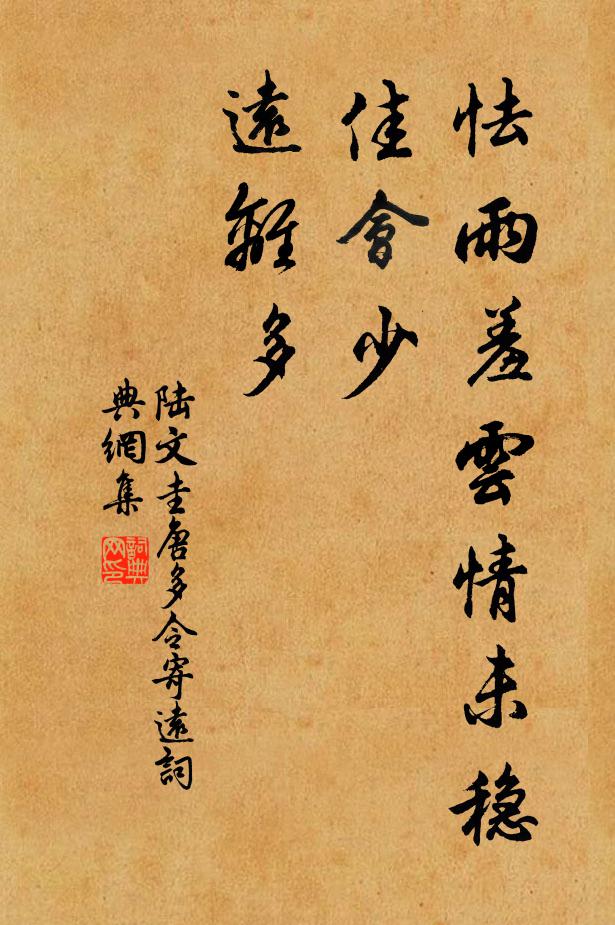 怯雨羞雲情未稳
佳會少
遠離多
陆文圭唐多令寄遠詞
典網集
詞典网印